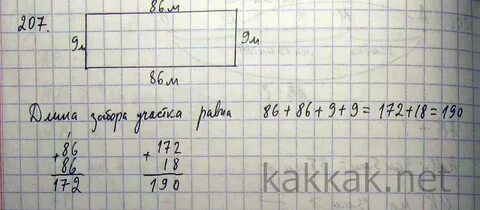 207.
86м
9м
9м
86м
Длина забора участка равна 86+86+9+9=172+18=190
+86
86
172
+172
18
190
kakkak.net